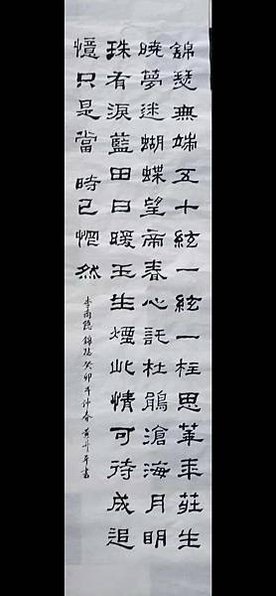 錦瑟無端五十絃一絃一柱思華年莊生
曉夢迷蝴蝶望帝春心託杜鵑滄海月明
珠有淚藍田日暖玉生煙此情可待成追
憶只是當時已惘然
李商隱錦瑟癸卯年仲春黃平書